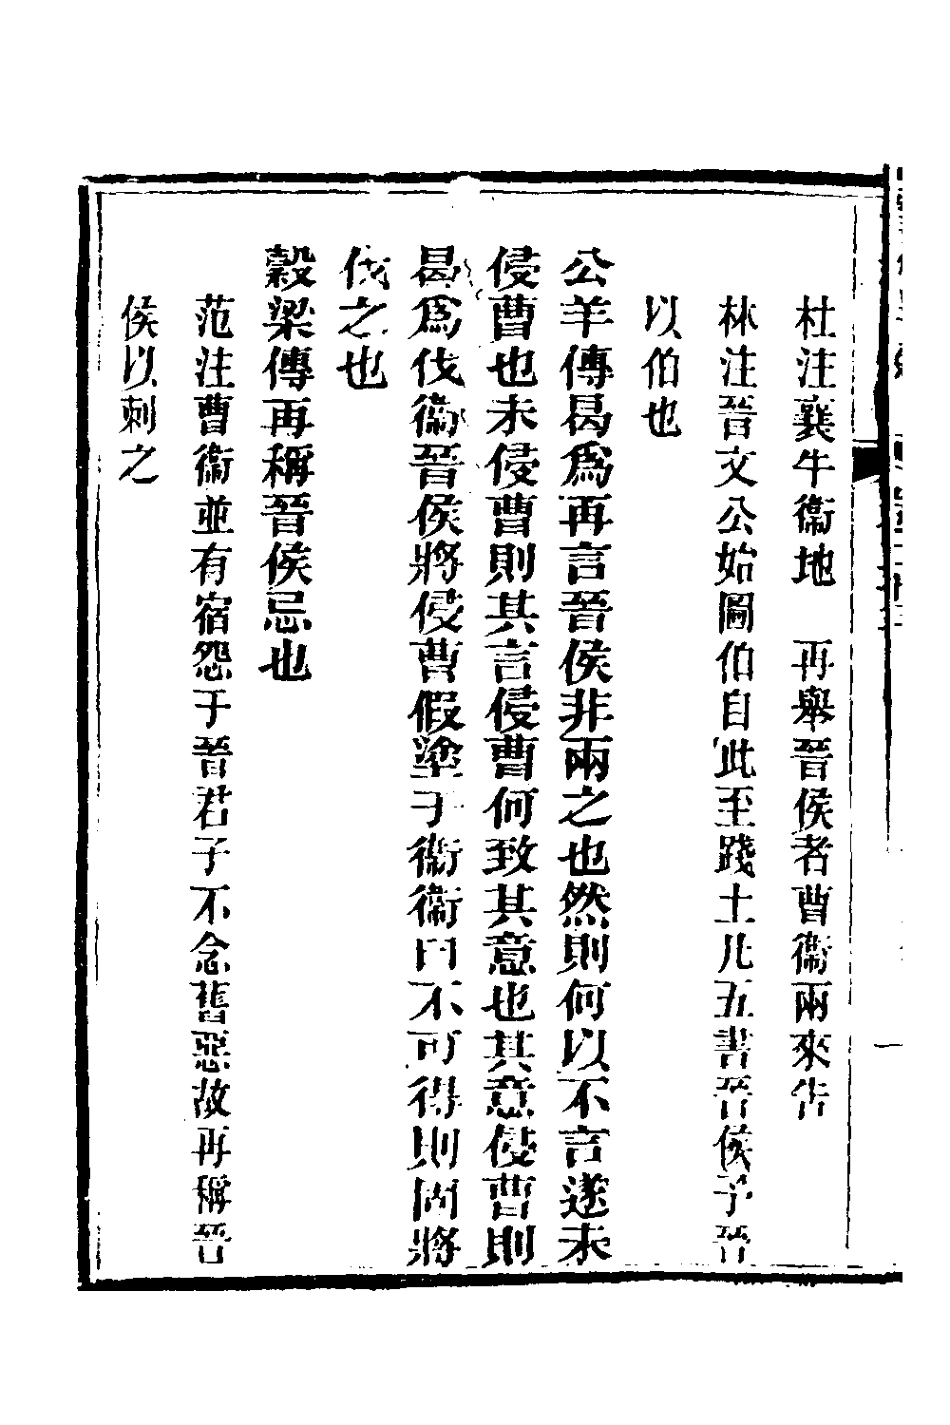 杜注襄牛衞地　再舉晉侯者曹衞兩來告
林注晉文公始圖伯自此至踐土凡五書晉侯予晉
以伯也
公羊傳曷爲再言晉侯非兩之也然則何以不言遂未
侵曹也未侵曹則其言侵曹何致其意也其意侵曹則
曷爲伐衞晉侯將侵曹假塗于衞衞曰不可得則固將
伐之也
穀梁傳再稱晉侯忌也
范注曹衞並有宿怨于晉君子不念舊惡故再稱晉
侯以刺之